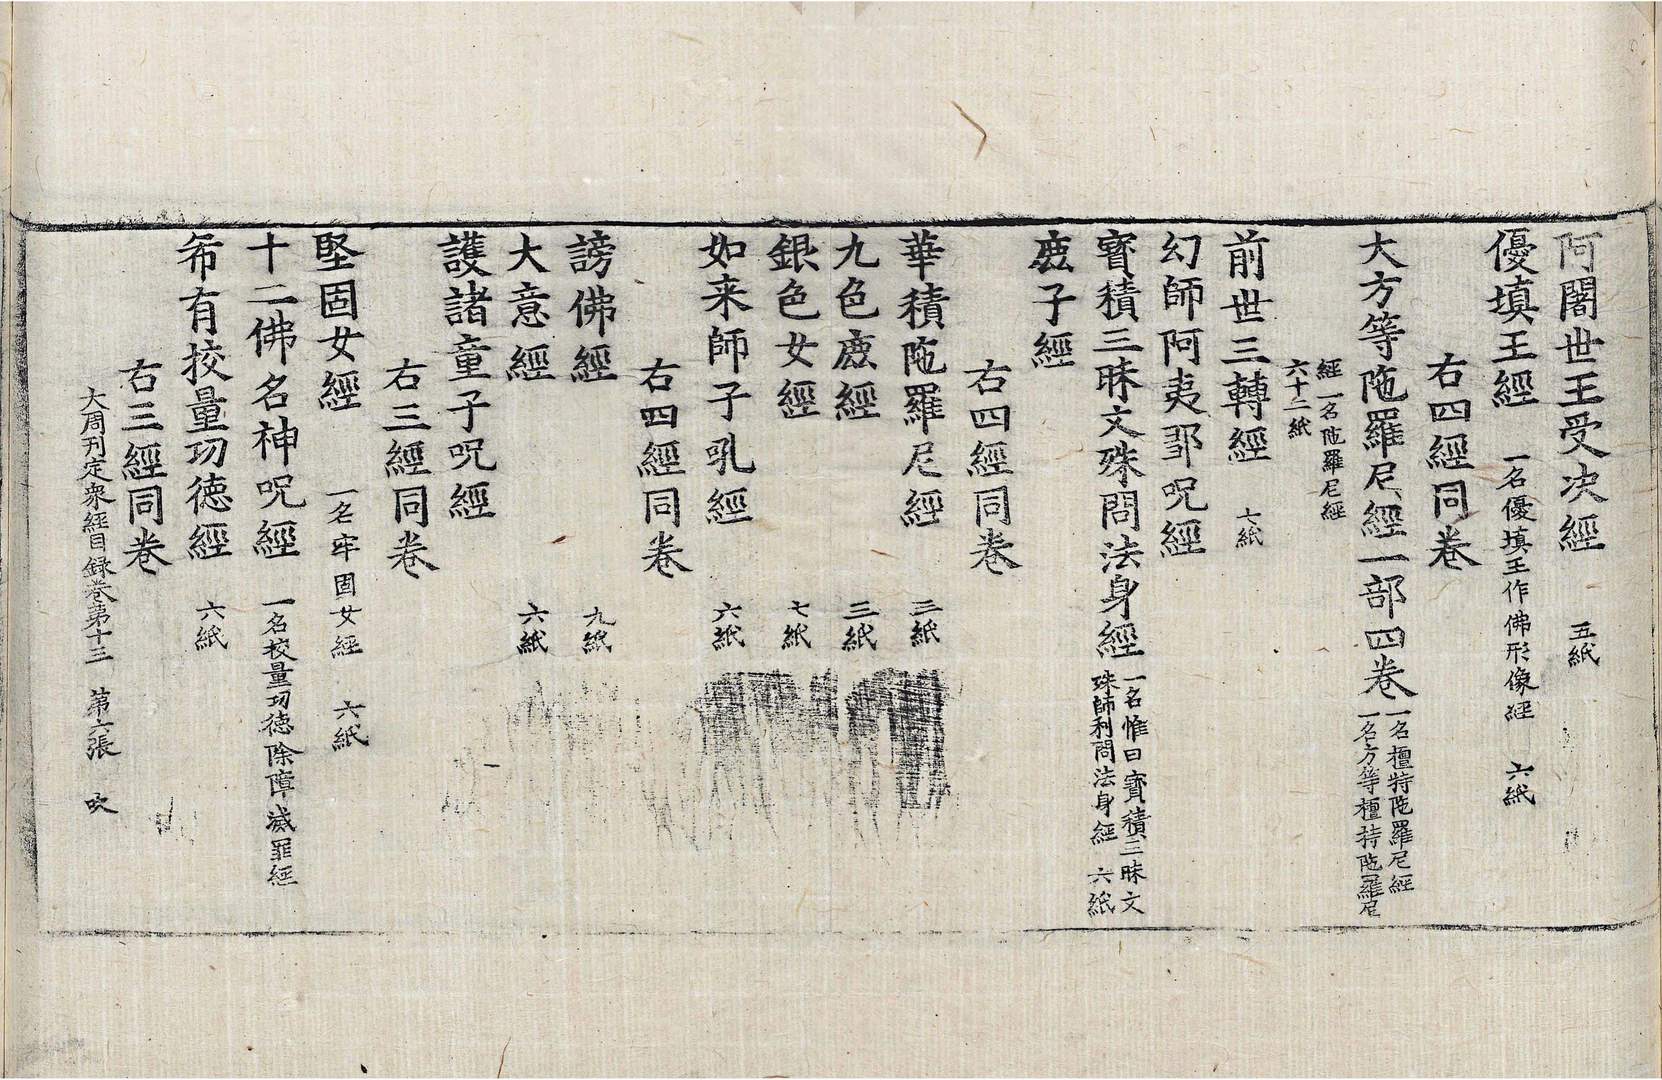 阿闍世王受决經 五紙
優填王經 一名優填王作佛形像經 六紙
右四經同卷
大方等陁羅尼經一部四卷 一名檀特陁羅尼經
一名方等檀持陁羅尼
經一名陁羅尼經
六十二紙
前世三轉經 七紙
幻師阿夷鄒呪經
寳積三昧文殊問法身經 一名惟曰寳積三昧文
殊師利問法身經 六紙
鹿子經
右四經同卷
華積陁羅尼經 三紙
九色鹿經 三紙
銀色女經 七紙
如来師子吼經 六紙
右四經同卷
謗佛經 九紙
大意經 六紙
護諸童子呪經
右三經同卷
堅固女經 一名牢固女經 六紙
十二佛名神呪經 一名挍量功徳除障滅罪經
希有挍量功德經 六紙
右三經同卷
大周刊定衆經目録卷第十三 第六張 吹